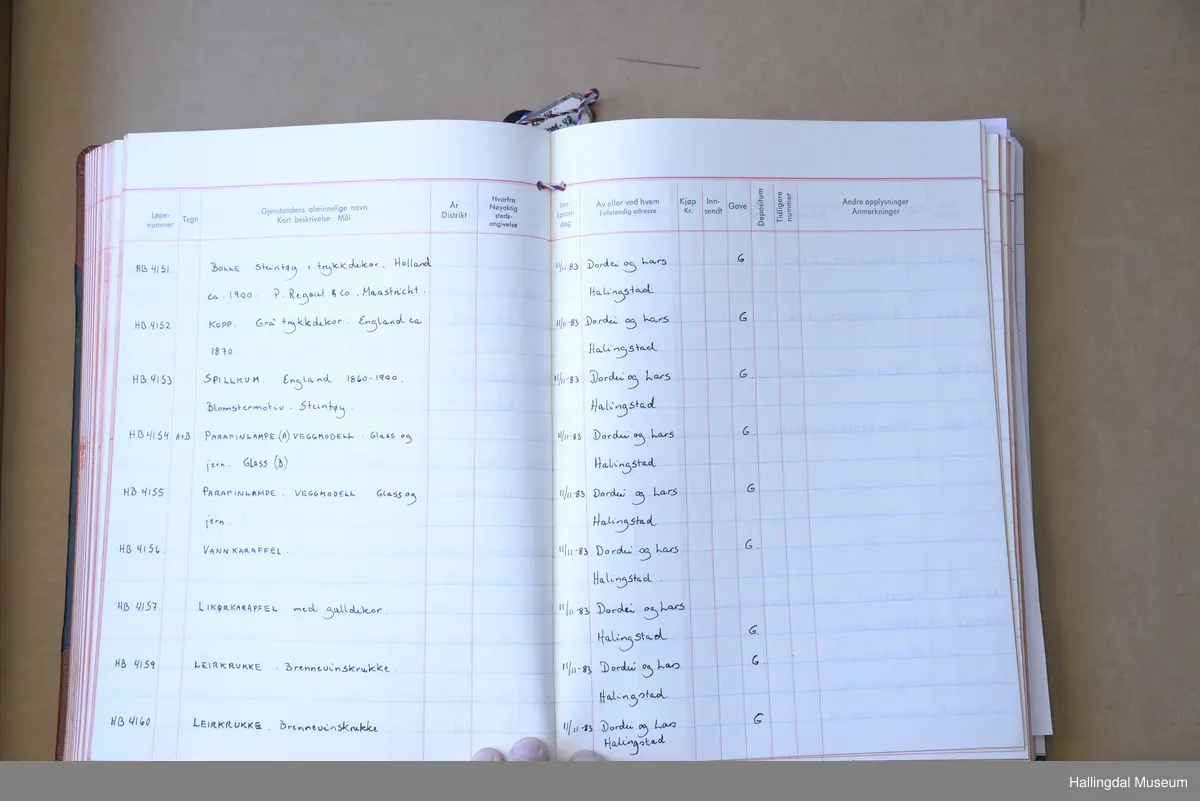 Løpe-nummer Tegn Gjenstandens alminnelige navn Kort beskrivelse Mål År Distrikt Hvorfra Nøyaktig steds-angivelse Inn-komst-dag Av eller ved hvem Fullstendig adresse Kjøp Kr. Inn-sendt Gave Depositum Tidligere nummer Andre opplysninger Anmerkninger
HB 4151 BOLLE steintøy i trykkdekor. Holland 11/11-83 Dordei og Lars G
ca. 1900. P. Regout & Co. Maastricht. Halingstad
HB 4152 KOPP. Grå trykkdekor. England ca 11/11-83 Dordei og Lars G
1870. Halingstad
HB 4153 SPILLKUM. England 1860-1900. 11/11-83 Dordei og Lars G.
Blomstermotiv. Steintøy. Halingstad
HB 4154 A+B PARAFINLAMPE (A) VEGGMODELL. Glass og 11/11-83 Dordei og Lars G.
jern. GLASS (B) Halingstad
HB 4155 PARAFINLAMPE. VEGGMODELL Glass og 11/11-83 Dordei og Lars G
jern. Halingstad
HB 4156. VANNKARAFFEL. 11/11-83 Dordei og Lars G.
Halingstad.
HB 4157 LIKØRKARAFFEL med gulldekor. 11/11-83 Dordei og Lars
Halingstad G.
HB 4159 LEIRKRUKKE. Brennevinskrukke. 11/11-83 Dordei og Lars G.
Halingstad
HB 4160 LEIRKRUKKE. Brennevinskrukke 11/11-83 Dordei og Lars G
Halingstad
Hallingdal Museum